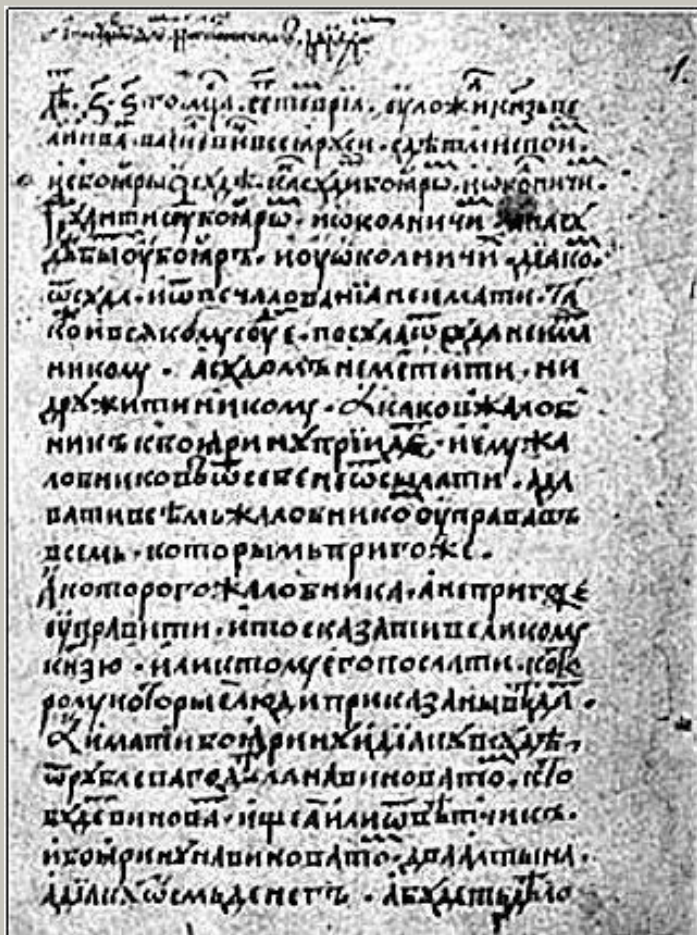 лѣ҇т. ҂ꙅ. ꙅ. го мцⷭ҇а септевріа. ѹложи кнзь ве
ликꙵ иванъ васиⷧевиⷱ всеа рꙋсїи. с дѣтми своиⷨ
и с боꙗры ѡ сꙋдѣ. каⷦ сꙋдиⷮ боꙗрѡⷨ. и ѡколничиⷨ.
Сꙋдити сꙋⷣ боꙗрѡⷨ. и ѡколничиⷨ. а на сꙋ
дѣ быⷮ ѹ боꙗръ. и ѹ ѡколничиⷯ. дїако
ѿ сꙋда. и ѿ печалованїа не имати. та
коⷤ и всякомꙋ сѹⷣе. посꙋла ѿ сꙋда не имаⷮ
никомꙋ. а сꙋдомъ не мстити. ни
дрꙋжити никомꙋ. А каковъ жалоб
никъ к боꙗринꙋ прїидеⷮ, и емꙋ жа
лобниковъ ѿ себе не ѿсылати. а да
вати всѣмь жалобникоⷨ ѹправа въ
всемь. которымь пригоже.
А которого жалобника. а непригоже
ѹправити. и то сказати великомꙋ
кнзю. или к томꙋ его послати. кото
ромꙋ которые люди приказаны вѣдаⷮ.
А имати боꙗринꙋ и дїакꙋ в сꙋдѣ,
ѿ рꙋблеваго дѣла на виноватоⷨ. кто
бꙋдеⷮ виноваⷮ. ищеа или ѿвѣтчикъ.
и боꙗринꙋ на виноватоⷨ. два алтына.
а дїакꙋ ѡсмь денегъ. а бꙋдеть дѣло